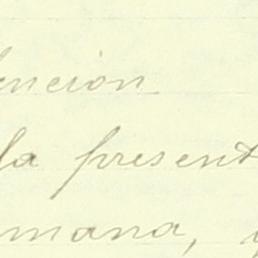 ención
la present
mana,